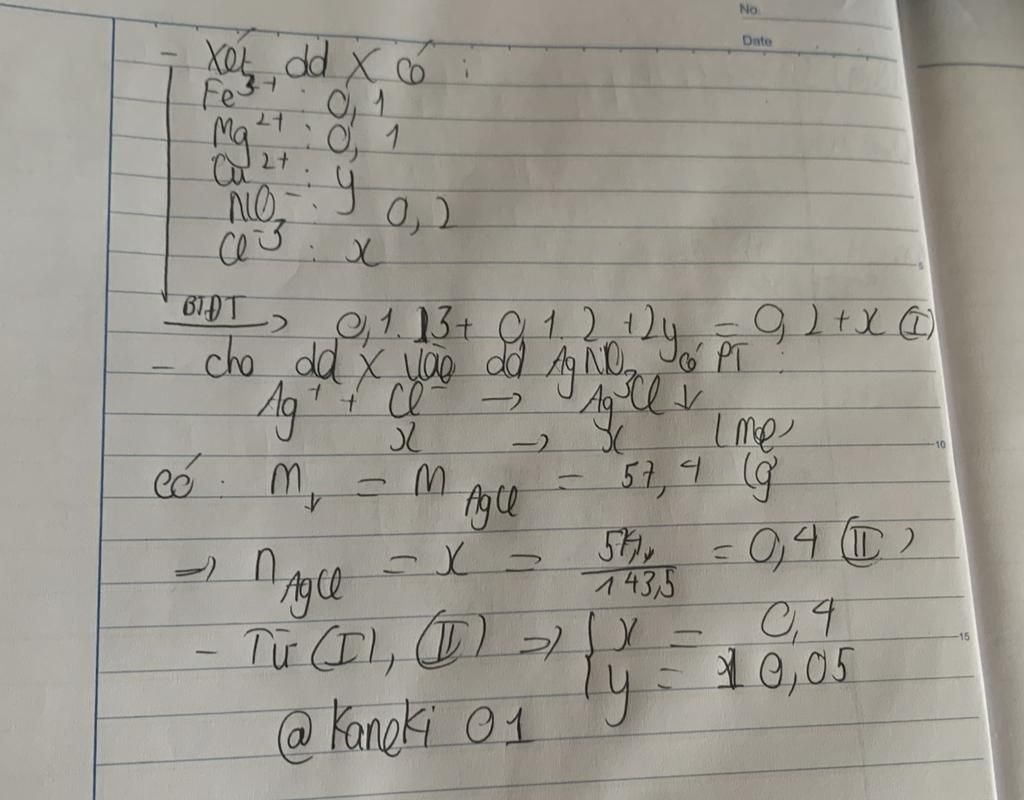 No.
Date
- Xét dd X có :
Fe³⁺ : 0,1
Mg²⁺ : 0,1
Cu²⁺ : y
NO₃⁻ : 0,2
Cl⁻ : x
BTĐT → 0,1.3 + 0,1.2 + 2y = 0,2 + x (I)
- cho dd X vào dd AgNO₃ có PT :
Ag⁺ + Cl⁻ → AgCl ↓
x → x (mol)
Có : m↓ = m AgCl = 57,4 (g)
=> n AgCl = x = 57,4/143,5 = 0,4 (II)
- Từ (I), (II) => { x = 0,4
y = 0,05
@Kaneki 01
5
10
15